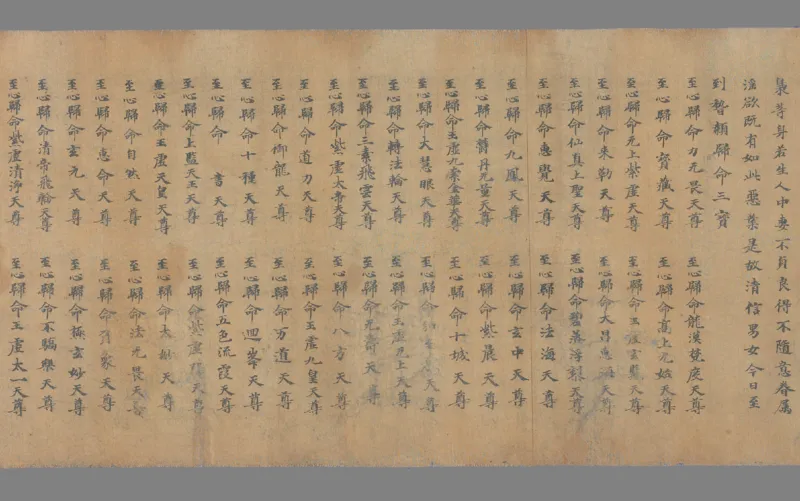 最等身若生人中妻不貞良得不隨意眷属
淫欲既有如此惡業是故清信男女今日至
到誓願歸命三寶
至心歸命力无畏天尊 至心歸命龍漢慧度天尊
至心歸命寶藏天尊 至心歸命高上元始天尊
至心歸命元上紫虛天尊 至心歸命玉虛玄天尊
至心歸命來勒天尊 至心歸命大慧海天尊
至心歸命仙真上聖天尊 至心歸命碧落浮黎天尊
至心歸命惠覺天尊 至心歸命法海天尊
至心歸命九鳳天尊 至心歸命玄中天尊
至心歸命丹元量天尊 至心歸命紫晨天尊
至心歸命玉虛九素金華天尊 至心歸命十城天尊
至心歸命大慧眼天尊 至心歸命天尊
至心歸命轉法輪天尊 至心歸命玉虛元上天尊
至心歸命三素飛雲天尊 至心歸命元壽天尊
至心歸命紫虛太帝天尊 至心歸命八方天尊
至心歸命道力天尊 至心歸命玉震九皇天尊
至心歸命御龍天尊 至心歸命万道天尊
至心歸命十種天尊 至心歸命迴峯天尊
至心歸命 書天尊 至心歸命五色流霞天尊
至心歸命上監天王天尊 至心歸命紫虛天尊
至心歸命玉虛天皇天尊 至心歸命太妙天尊
至心歸命自然天尊 至心歸命法无畏天尊
至心歸命惠命天尊 至心歸命象天尊
至心歸命玄元天尊 至心歸命玄妙天尊
至心歸命清帝飛輪天尊 至心歸命不驕樂天尊
至心歸命紫虛清淨天尊 至心歸命玉虛太一天尊